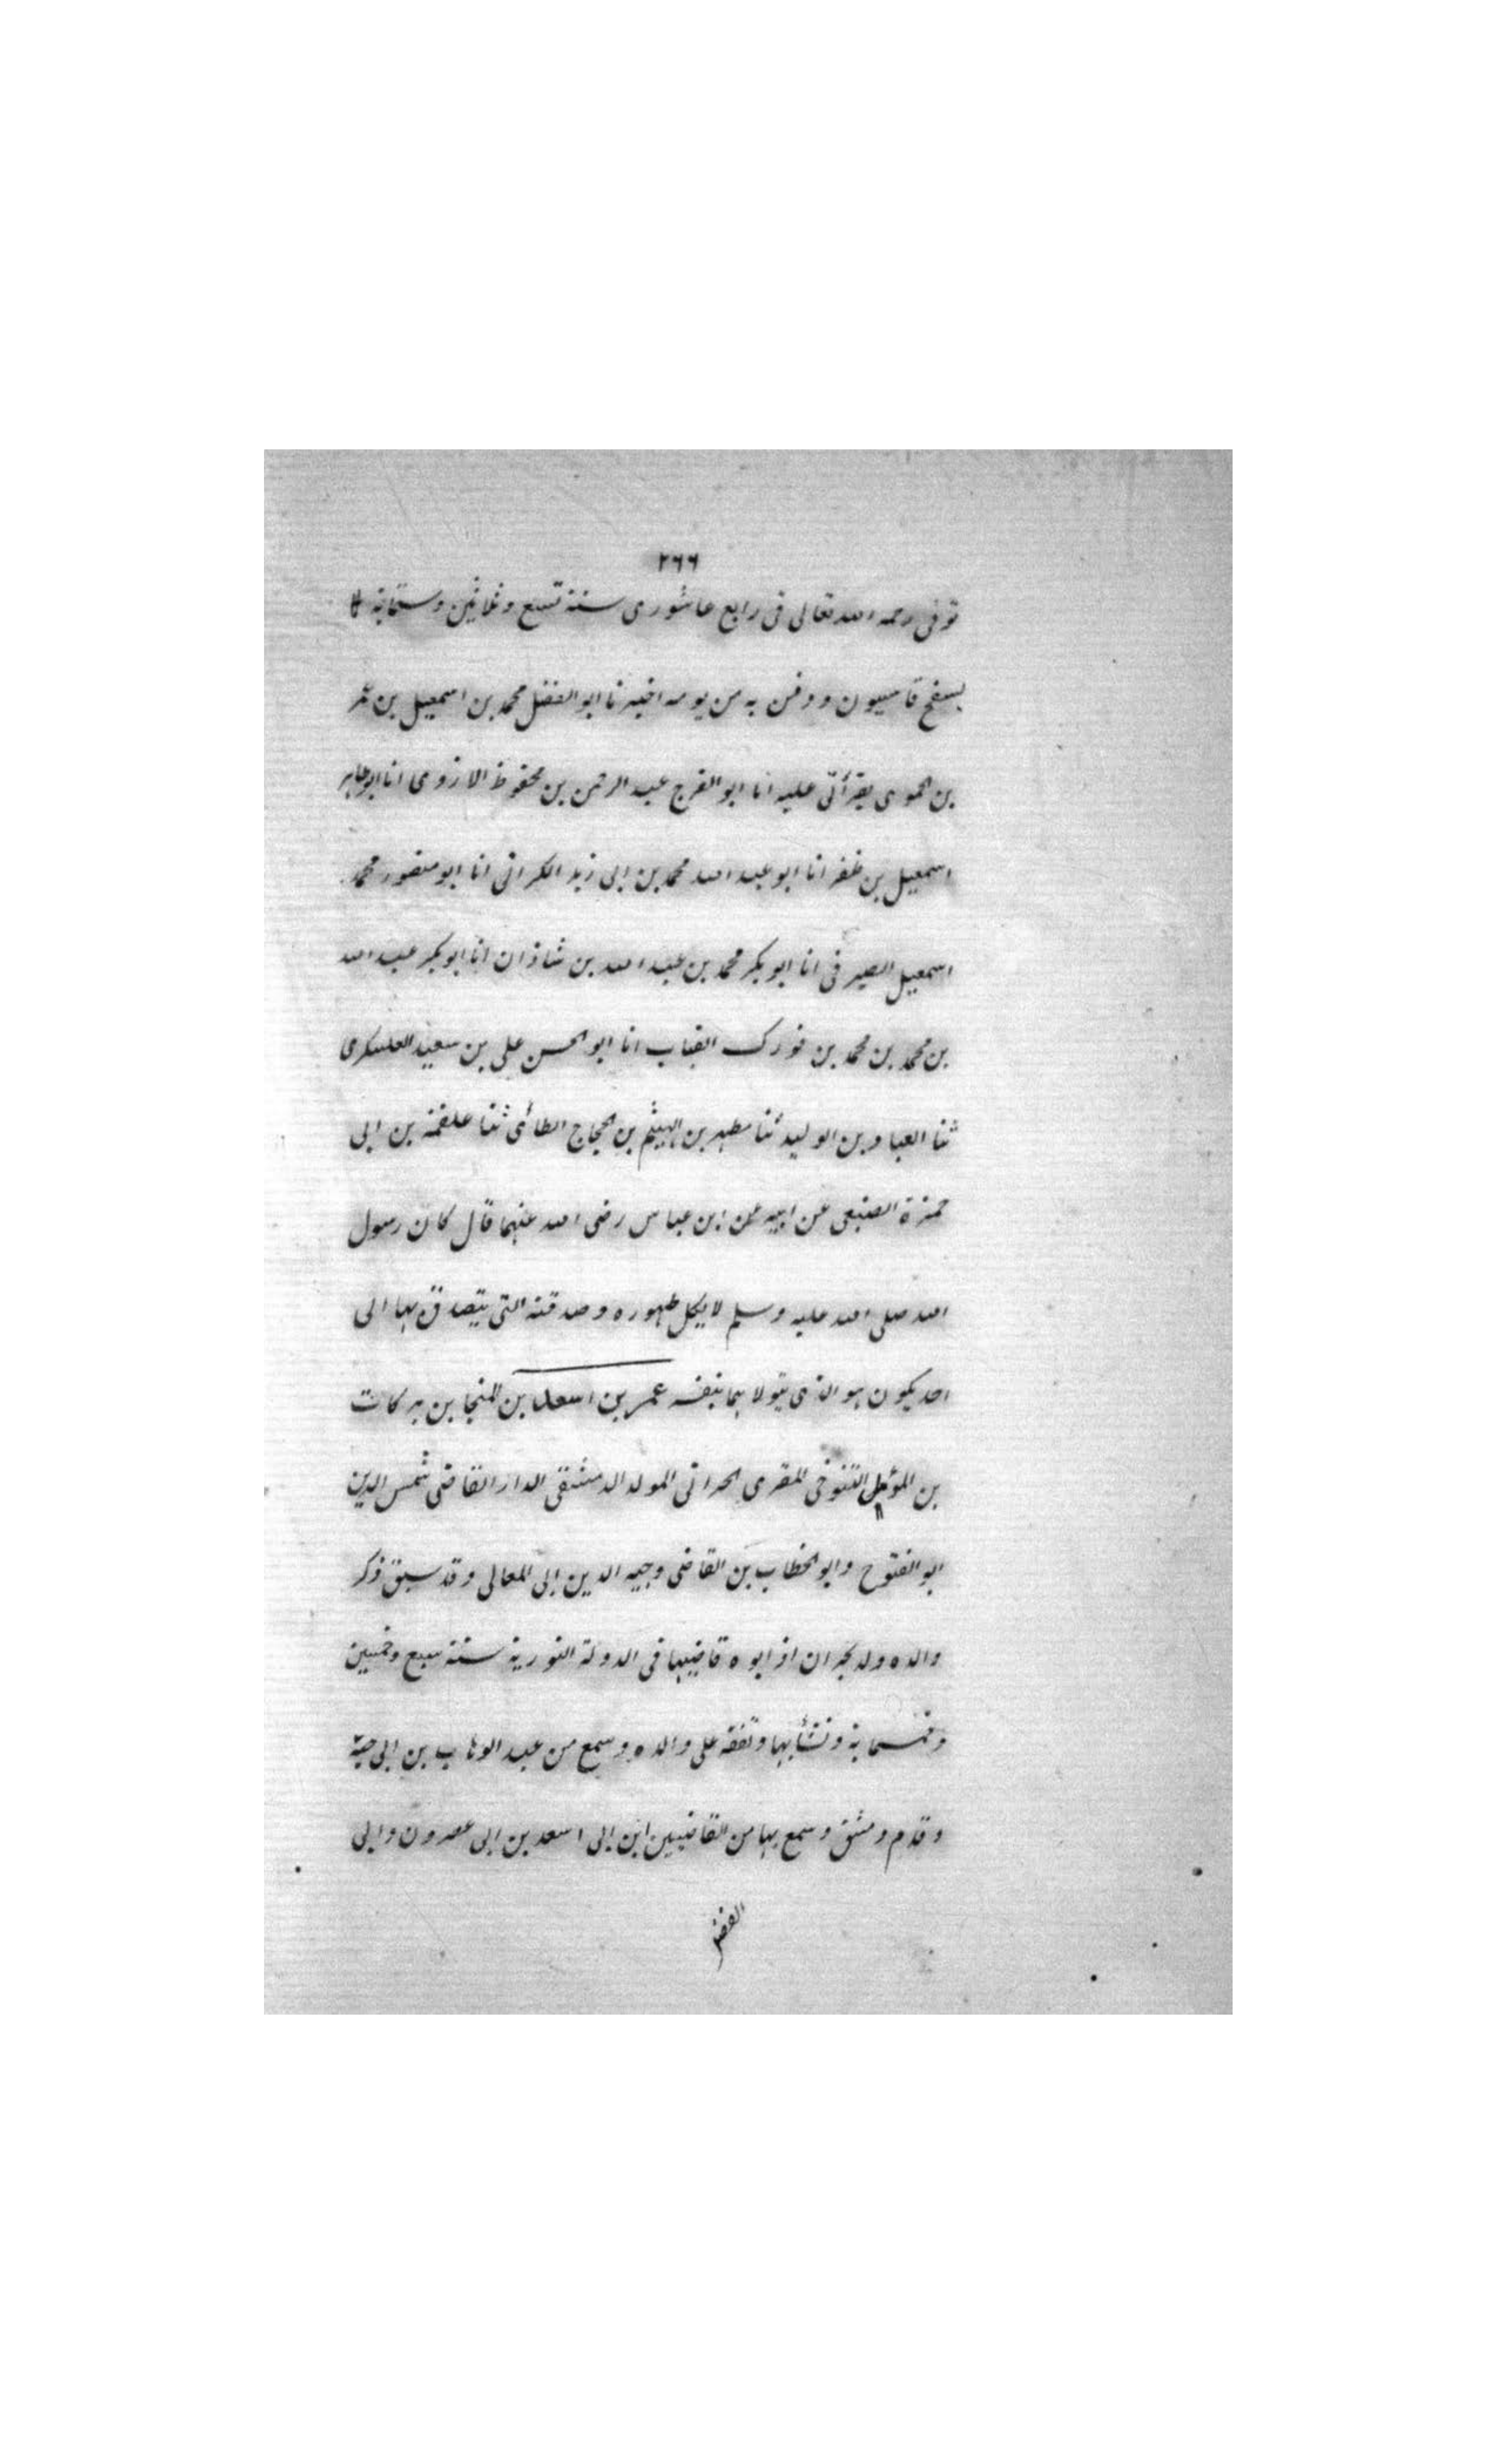 ٢٦٦
توفى رحمه الله تعالى فى رابع عاشورى سنة تسع وثلاثين وستمائة
بسفح قاسيون ودفن به من يومه اخبرنا ابو الفضل محمد بن اسمعيل بن عمر
بن الحموى بقرأتى عليه انا ابو الفرج عبد الرحمن بن محفوظ الازدى انا ابو طاهر
اسمعيل بن ظفر انا ابو عبد الله محمد بن ابى زيد الكرانى انا ابو منصور محمد
اسمعيل الصيرفى انا ابو بكر محمد بن عبد الله بن شاذان انا ابو بكر عبد الله
بن محمد بن محمد بن فورك القباب انا ابو الحسن على بن سعيد العسكرى
ثنا العباد بن الوليد ثنا مطهر بن الهيثم بن الحجاج الطائى ثنا علقمة بن ابى
حمزة الضبعى عن ابيه عن ابن عباس رضى الله عنهما قال كان رسول
الله صلى الله عليه وسلم لا يكل طهوره وصدقته التى يتصدق بها الى
احد يكون هو الذى يتولاهما بنفسه عمر بن اسعد بن المنجا بن بركات
بن المؤمل التنوخى المقرى الحرانى المولد الدمشقى الدار القاضى شمس الدين
ابو الفتوح وابو الخطاب بن القاضى وجيه الدين ابى المعالى وقد سبق ذكر
والده ولد بحران اذ ابوه قاضيها فى الدولة النورية سنة سبع وخمسين
وخمسماية ونشأ بها وتفقه على والده وسمع من عبد الوهاب بن ابى حبة
وقدم دمشق وسمع بها من القاضيين ابن ابى اسعد بن ابى عصرون وابى
الفضل